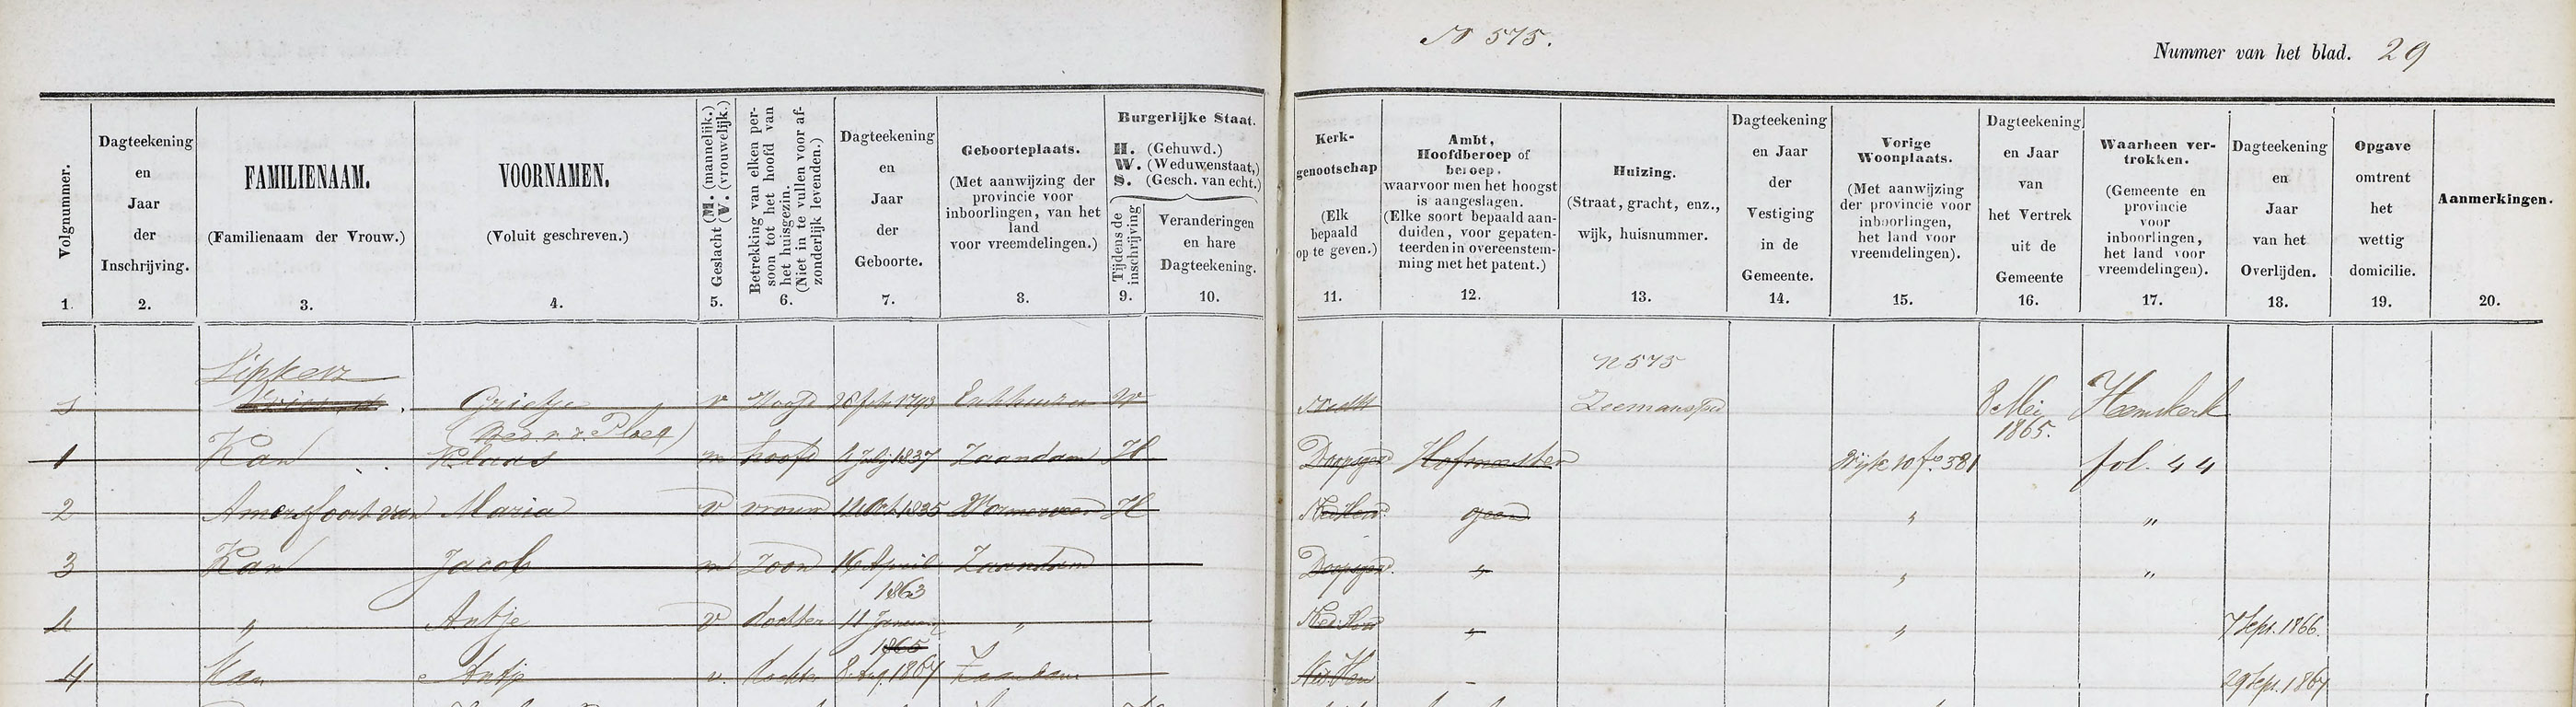 N 575.
Nummer van het blad. 29
Volgnummer.
1.
Dagteekening
en
Jaar
der
Inschrijving.
2.
FAMILIENAAM.
(Familienaam der Vrouw.)
3.
VOORNAMEN.
(Voluit geschreven.)
4.
Geslacht (M. (mannelijk.)
(V. (vrouwelijk.)
5.
Betrekking van elken per-
soon tot het hoofd van
het huisgezin.
(Niet in te vullen voor af-
zonderlijk levenden.)
6.
Dagteekening
en
Jaar
der
Geboorte.
7.
Geboorteplaats.
(Met aanwijzing der
provincie voor
inboorlingen, van het
land
voor vreemdelingen.)
8.
Burgerlijke Staat.
H. (Gehuwd.)
W. (Weduwenstaat,)
S. (Gesch. van echt.)
Tijdens de
inschrijving
9.
Veranderingen
en hare
Dagteekening.
10.
Kerk-
genootschap
(Elk
bepaald
op te geven.)
11.
Ambt,
Hoofdberoep of
beroep,
waarvoor men het hoogst
is aangeslagen.
(Elke soort bepaald aan-
duiden, voor gepaten-
teerden in overeenstem-
ming met het patent.)
12.
Huizing.
(Straat, gracht, enz.,
wijk, huisnummer.
13.
Dagteekening
en Jaar
der
Vestiging
in de
Gemeente.
14.
Vorige
Woonplaats.
(Met aanwijzing
der provincie voor
inboorlingen,
het land voor
vreemdelingen).
15.
Dagteekening
en Jaar
van
het Vertrek
uit de
Gemeente
16.
Waarheen ver-
trokken.
(Gemeente en
provincie
voor
inboorlingen,
het land voor
vreemdelingen).
17.
Dagteekening
en
Jaar
van het
Overlijden.
18.
Opgave
omtrent
het
wettig
domicilie.
19.
Aanmerkingen.
20.
n 575
Grietje v Hoofd 1793 Enkhuizen W Zeemanspad 8 Mei 1865. Heemskerk
(Wed. v. d. Ploeg)
1 Kan Klaas m hoofd July 1837 Zaandam H Doopsgez Hofmeester Wijk 10 fo. 381 fol. 44
2 Amersfoort van Maria v vrouw Oct. 1835 Wormerveer H Ned Herv. geen " "
3 Kan Jacob m zoon 16 April 1863 Zaandam Doopsgez. " " "
4 " Antje v dochter 11 Januarij 1865 " Ned. Herv " " 7 Sept. 1866.
4 Kan Antje v. dochter 8 Aug. 1867 Zaandam Ned. Herv - 29 Sept. 1867